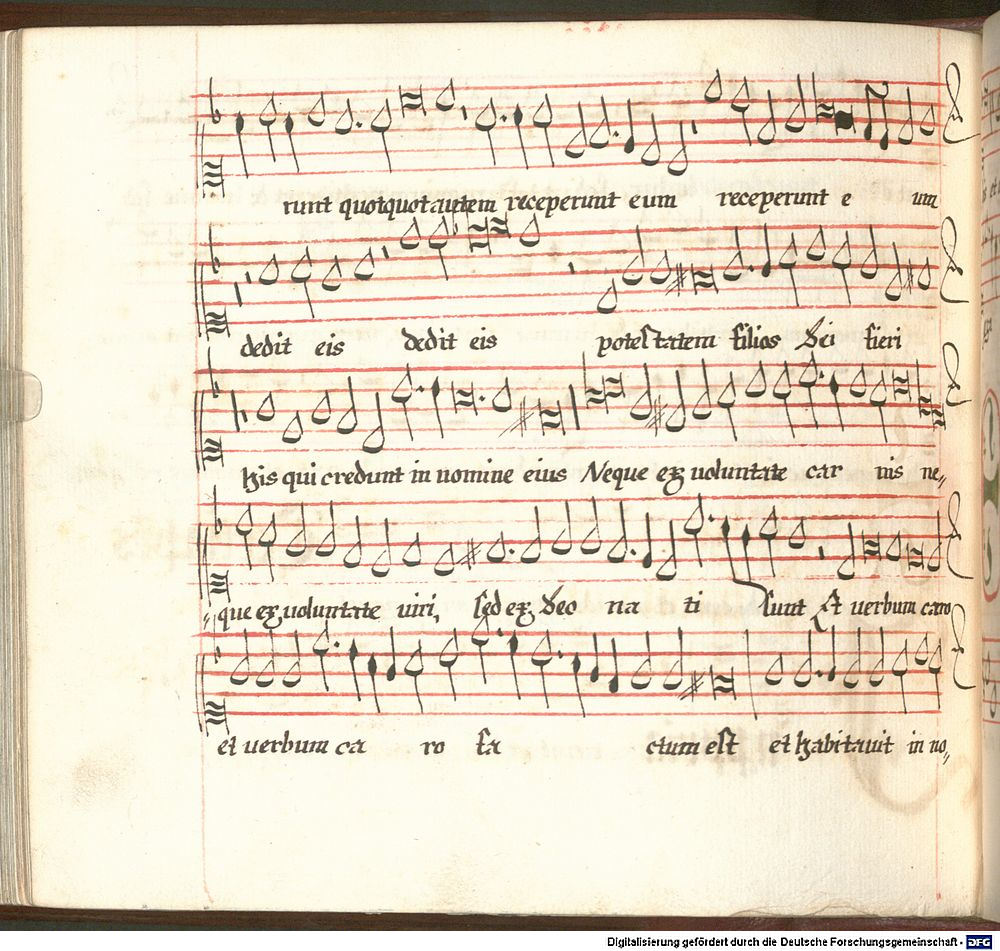 runt quotquot autem receperunt eum receperunt e um
dedit eis dedit eis potestatem filios Dei fieri
his qui credunt in nomine eius Neque ex voluntate car nis ne„
„que ex uoluntate uiri, sed ex Deo na ti sunt Et uerbum caro
et uerbum ca ro fa ctum est et habitauit in no„
Digitalisierung gefördert durch die Deutsche Forschungsgemeinschaft - DFG